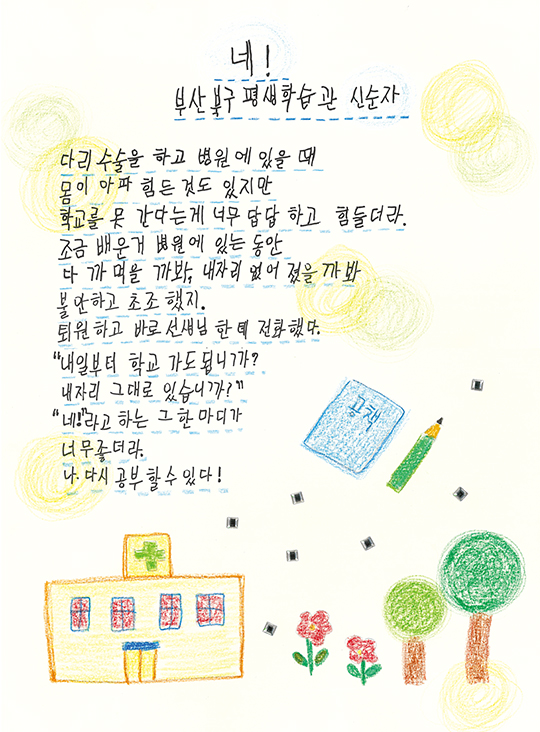 네!
부산북구 평생학습관 신순자
다리 수술을 하고 병원에 있을 때
몸이 아파 힘든것도 있지만
학교를 못 간다는게 너무 답답 하고 힘들더라.
조금 배운거 병원에 있는 동안
다 까 먹을 까봐, 내자리 없어 졌을 까봐
불안하고 초조 했지.
퇴원하고 바로 선생님 한테 전화했다.
"내일부터 학교 가도 됩니까?
내자리 그대로 있습니까?"
"네!"라고 하는 그 한 마디가
너무좋더라.
나. 다시 공부 할수 있다!
공책